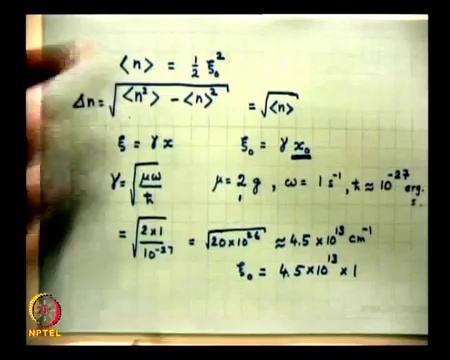 ⟨n⟩ = 1/2 ξ₀²
Δn = √(⟨n²⟩ - ⟨n⟩²) = √⟨n⟩
ξ = γx    ξ₀ = γ x₀
γ = √(μω/ħ)    μ = 2 g, ω = 1 s⁻¹, ħ ≈ 10⁻²⁷ erg. s.
= √(2×1/10⁻²⁷) = √(20×10²⁶) ≈ 4.5×10¹³ cm⁻¹
ξ₀ = 4.5×10¹³×1
NPTEL